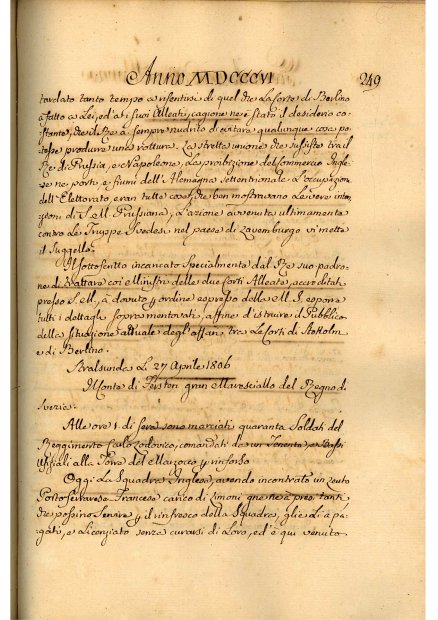 Anno MDCCCVI 249
tardato tanto tempo a risentirsi di quel che la Corte di Berlino
à fatto a Lei, od ai suoi Alleati, cagione ne è stato il desiderio co-
stante, che il Re à sempre nudrito di evitare qualunque cosa po-
tesse produrre una rottura. La stretta unione che sussiste tra il
Re di Prussia, e Napoleone, la proibizione del Commercio Ingle-
se ne porti, e fiumi dell'Alemagna settentrionale, l'occupazione
dell'Elettorato, eran tutte cose, che ben mostravano le vere inten-
zioni di S. M. Prussiana. L'azione avvenuta ultimamente
contro le Truppe Svedesi nel paese di Lavenburgo vi mette
il suggello.
Il sottoscritto incaricato specialmente dal Re suo padro-
ne di trattare coi Ministri delle due Corti Alleate, accreditati
presso S. M., à dovuto per ordine espresso della M. S. esporre
tutti i dettagli sopra mentovati, affine d'istruire il Pubblico
della situazione attuale degli affari tra le Corti di Stokolm
e di Berlino.
Stralsunda li 27 Aprile 1806
Il Conte di Fersten gran Maresciallo del Regno di
Svezia.
Alle ore 1 di sera sono marciati quaranta Soldati del
Reggimento Carlo Lodovico, comandati da un Tenente, e Bassi
Uffiziali alla Torre del Marzocco per rinforzo
Oggi la Squadra Inglese, avendo incontrato un
Francese carico di limoni que ne à presi tanti
che possino servire per il rinfresco della Squadra, glie li à pa-
gati, e licenziato senza curarsi di Loro, ed è qui venuto.